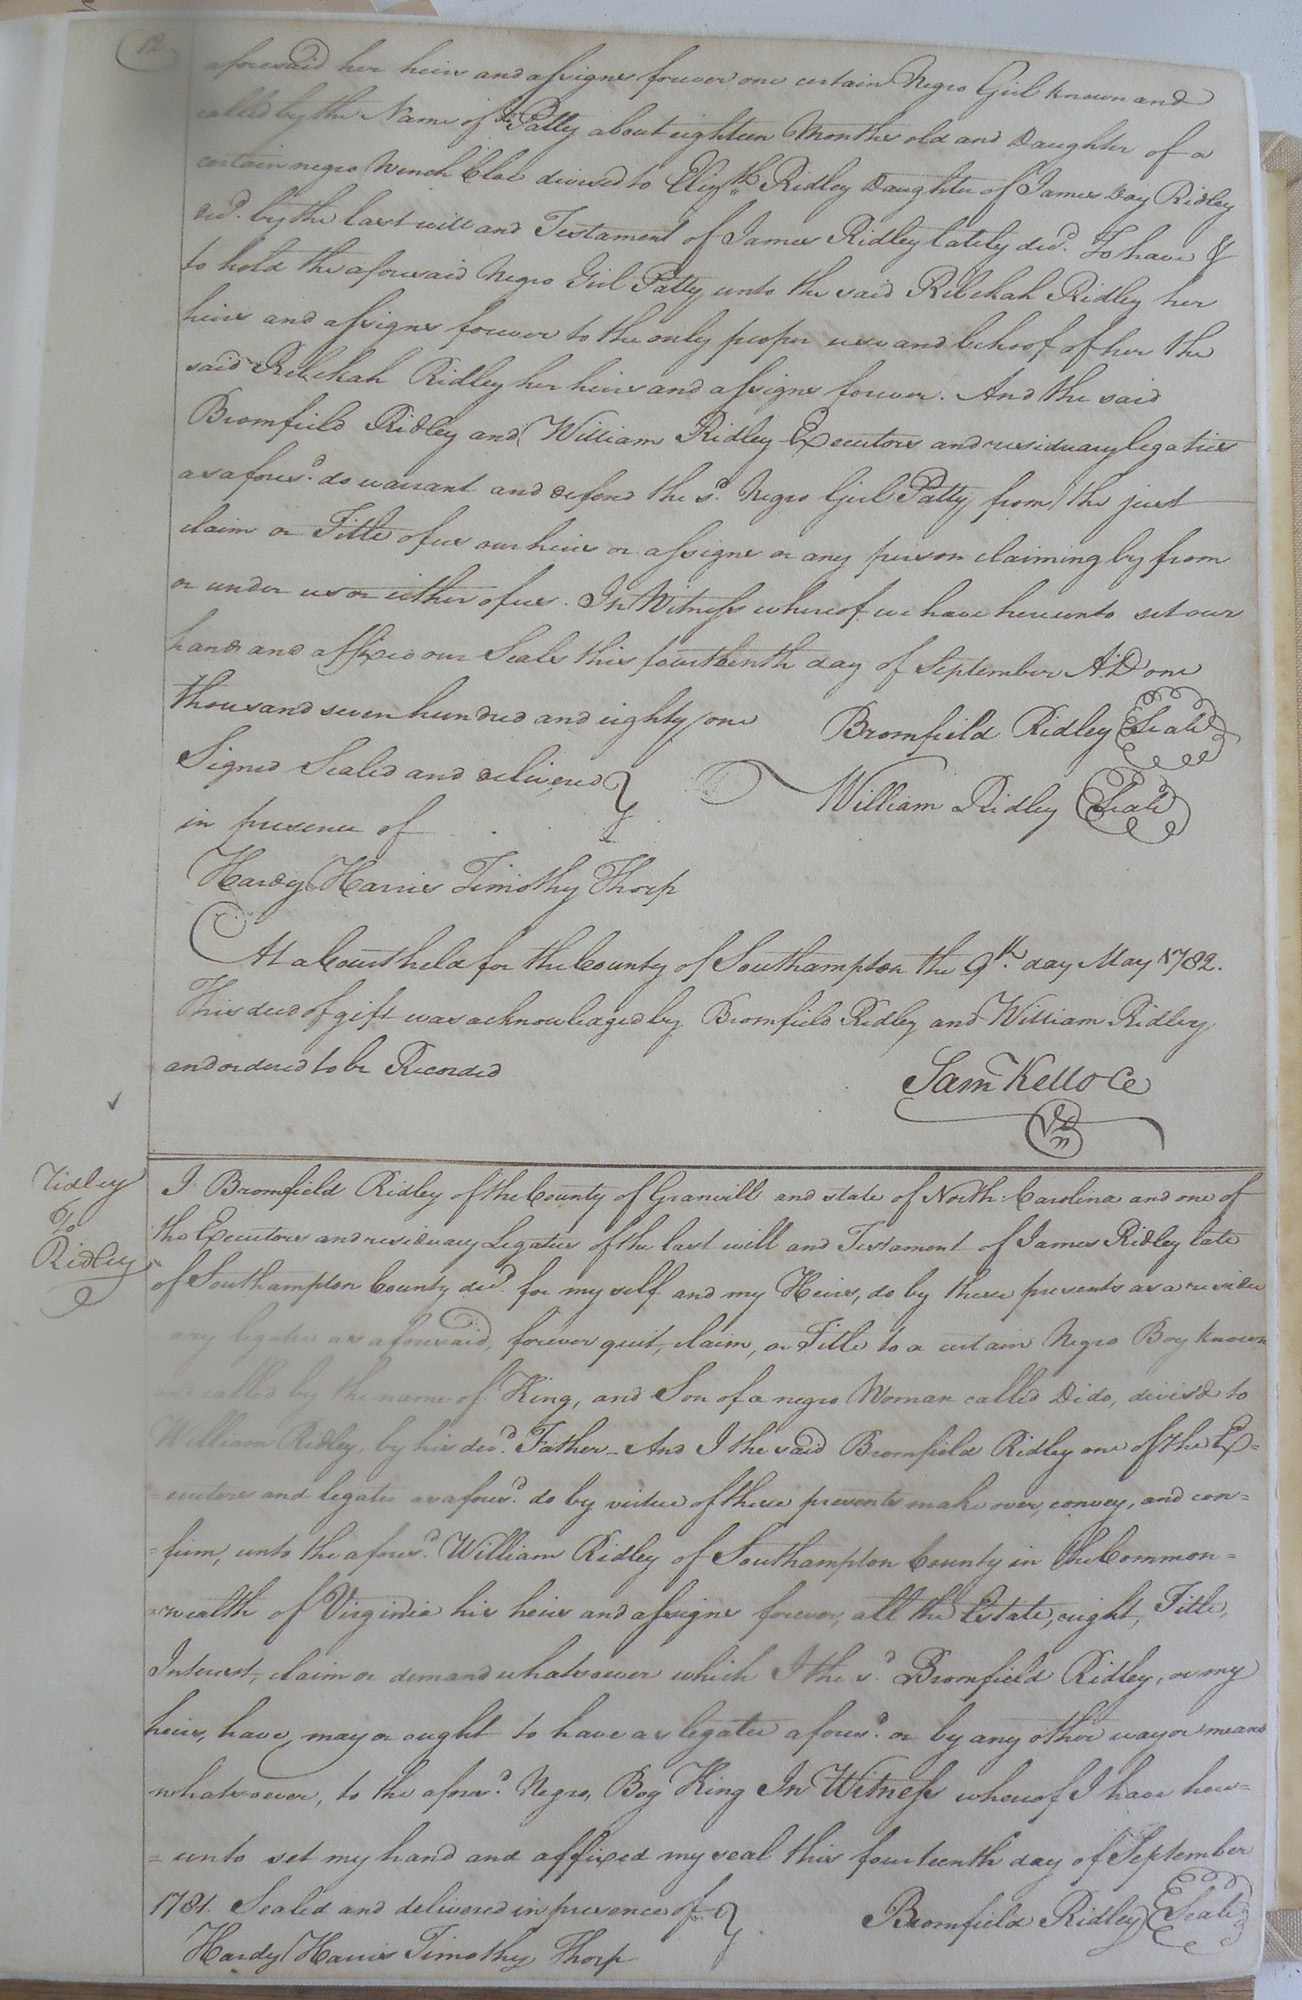 12
aforesaid her heirs and assigns forever one certain Negro Girl known and
called by the Name of Patty about eighteen Months old and Daughter of a
certain negro Wench Cloe devised to Elizth. Ridley Daughter of James Day Ridley
decd. by the last will and Testament of James Ridley lately decd. To have &
to hold the aforesaid Negro Girl Patty unto the said Rebekah Ridley her
heirs and assigns forever to the only proper use and behoof of her the
said Rebekah Ridley her heirs and assigns forever. And the said
Bromfield Ridley and William Ridley Executors and residuary legaties
as afores.d do warrant and defend the sd. Negro Girl Patty from the just
claim or Title of us our heirs or assigns or any person claiming by from
or under us or either of us. In Witness whereof we have hereunto set our
hands and affixed our Seals this fourteenth day of September AD one
thousand seven hundred and eighty one
Bromfield Ridley Seal
Signed Sealed and delivered
William Ridley Seal
in presence of
Hardy Harris Timothy Thorp
At a Court held for the County of Southampton the 9th. day May 1782.
This deed of gift was acknowledged by Bromfield Ridley and William Ridley
and ordered to be Recorded
Saml Kello Cc
Ridley
To
Ridley
I Bromfield Ridley of the County of Granvill and state of North Carolina and one of
the Executors and residuary Legatees of the last will and Testament of James Ridley late
of Southampton County decd. for my self and my Heirs, do by these presents as a residu
ary legatee as aforesaid, forever quit, claim, or Title to a certain Negro Boy known
and called by the name of King, and Son of a negro Woman called Dido, devis'd to
William Ridley, by his decd. Father - And I the said Bromfield Ridley one of the Ex=
=ecutors and legatee as afores.d do by virtue of these presents make over, convey, and con=
=firm, unto the afores.d William Ridley of Southampton County in the Common=
=wealth of Virginia his heirs and assigns forever, all the Estate, right, Title,
Interest, claim or demand whatsoever which I the sd. Bromfield Ridley, or my
heirs, have, may or ought to have as legatee afores.d or by any other way or means
whatsoever, to the afores.d Negro, Boy King In Witness whereof I have here=
=unto set my hand and affixed my seal this fourteenth day of September
1781. Sealed and delivered in presence of
Bromfield Ridley Seal
Hardy Harris Timothy Thorp